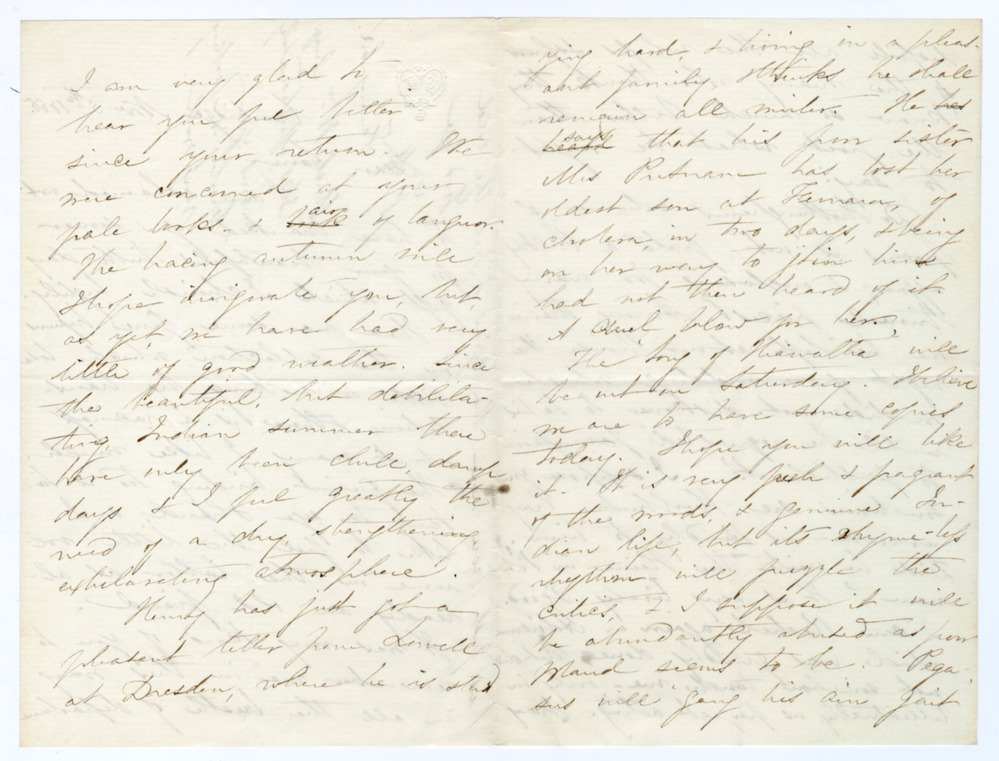 I am very glad to
hear you feel better
since your return. We
were concerned at your
pale looks & air of languor.
The bracing autumn will
I hope invigorate you, but,
as yet, we have had very
little of good weather. Since
the beautiful, but debilita-
ting, Indian summer there
have only been chill, damp
days & I feel greatly the
need of a dry, strengthening
exhilarating atmosphere.
Henry has just got a
pleasant letter from Lowell
at Dresden, where he is stud
ying hard, & living in a pleas-
ant family, thinks he shall
remain all winter. He has
heard says that his poor sister
Mrs Putnam has lost her
oldest son at Ferrara, of
cholera, in two days, & being
on her way to join him
had not then heard of it.
A cruel blow for her,
The Song of Hiawatha will
be out on Saturday. I believe
we are to have some copies
today. I hope you will like
it. It is very fresh & fragrant
of the woods, & genuine In-
dian life, but its rhyme-less
rhythm will puzzle the
critics, & I suppose it will
be abundantly abused as poor
Maud seems to be. Pega-
sus will gang his ain gait